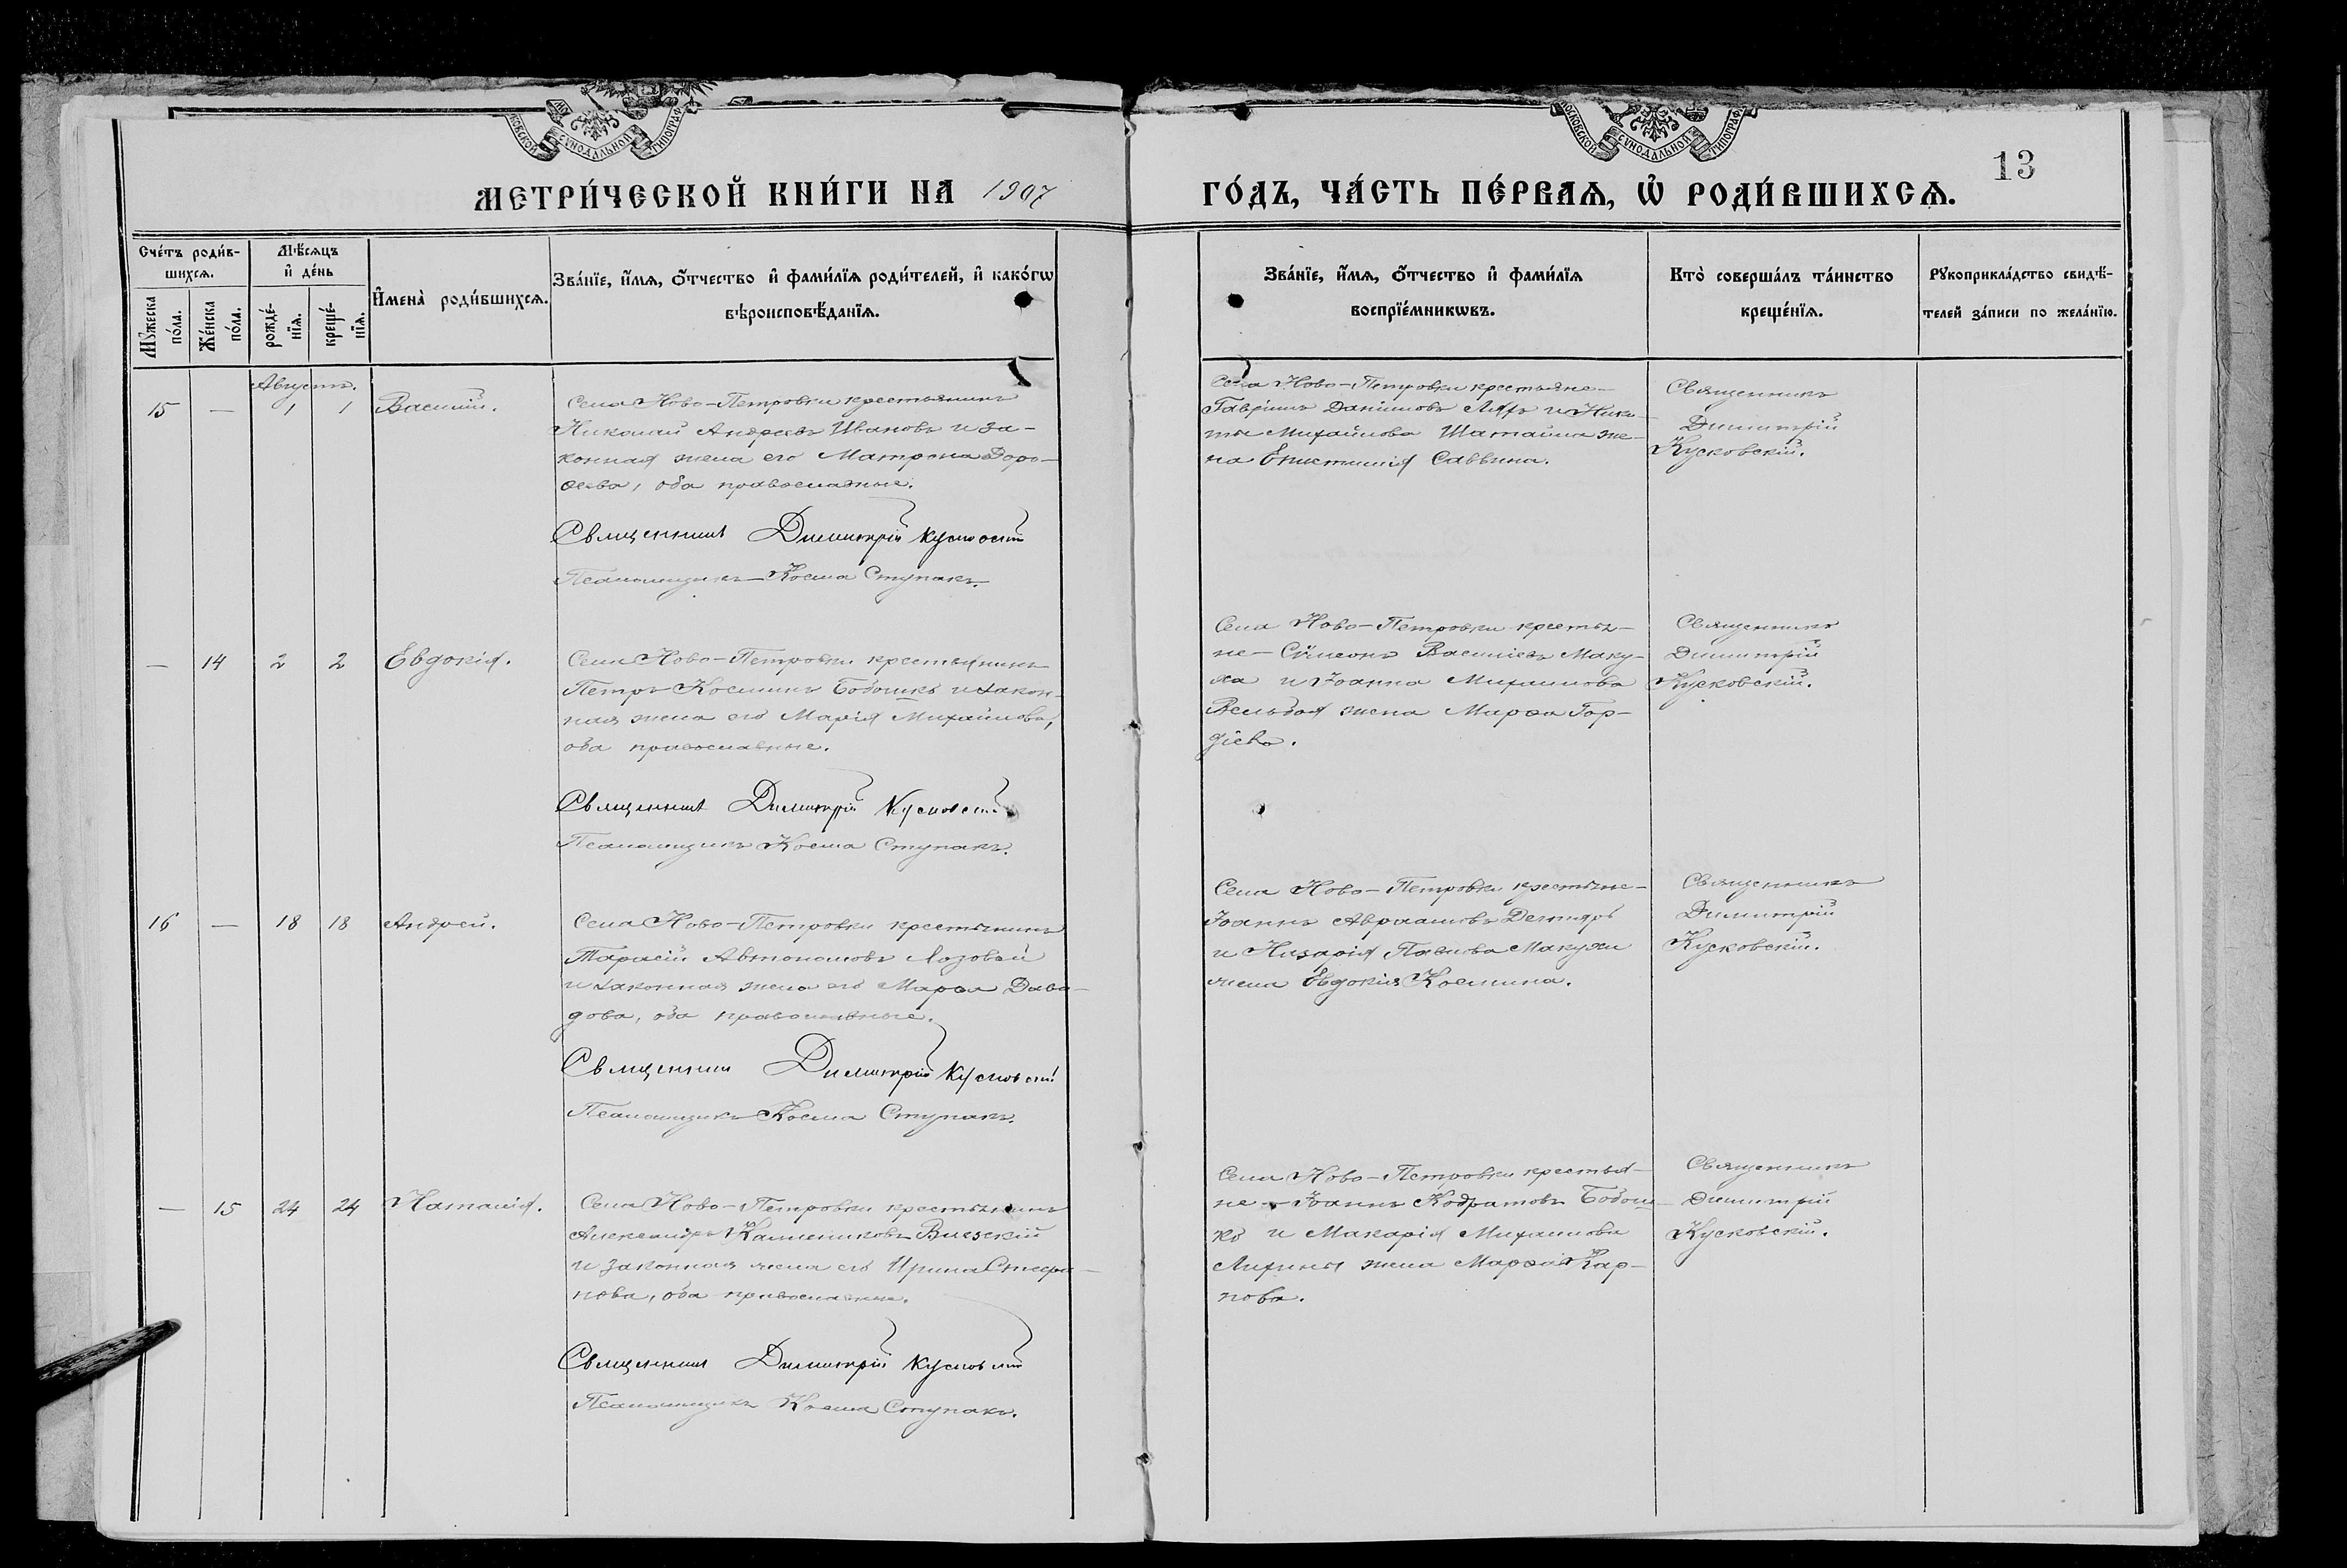 МОСКОВСКОЙ СѴНОДАЛЬНОЙ ТИПОГРАФ
МОСКОВСКОЙ СѴНОДАЛЬНОЙ ТИПОГРАФ
13
МЕТРИ́ЧЕСКОЙ КНИ́ГИ НА 1907 ГО́ДЪ, ЧА́СТЬ ПЕ́РВАЯ, Ѡ҆ РОДИ́ВШИХСЯ.
Сче́тъ роди́в-
шихся.
Мѣ́сяцъ
и҆ де́нь
Мꙋ́жеска
по́ла.
Же́нска
по́ла.
рожде́-
нїя.
креще́-
нїя.
И҆мена̀ роди́вшихся.
Зва́нїе, и҆́мя, ѻ҆́тчество и҆ фами́лїя роди́телей, и҆ како́гѡ
вѣроисповѣ́данїя.
Зва́нїе, и҆́мя, ѻ҆́тчество и҆ фами́лїя
воспрїе́мникѡвъ.
Кто̀ соверша́лъ та́инство
креще́нїя.
Рꙋкоприкла́дство свидѣ́-
телей за́писи по жела́нїю.
Августъ.
15 — 1 1 Василій.
Села Ново-Петровки крестьянинъ
Николай Андреевъ Ивановъ и за-
конная жена его Матрона Доро-
ѳеева, оба православные.
Священникъ Димитрій Кусковскій
Псаломщикъ Косма Ступакъ.
Села Ново-Петровки крестьяне-
Гавріилъ Даніиловъ Ляхъ и Ники-
ты Михайлова Шатайла же-
на Епистимія Саввина.
Священникъ
Димитрій
Кусковскій.
— 14 2 2 Евдокія.
Села Ново-Петровки крестьянинъ
Петръ Косминъ Бобошко и закон-
ная жена его Марія Михайлова,
оба православные.
Священникъ Димитрій Кусковскій
Псаломщикъ Косма Ступакъ.
Села Ново-Петровки крестья-
не- Сѵмеонъ Василіевъ Маку-
ха и Іоанна Михаилова
жена Марѳа Гор-
діева.
Священникъ
Димитрій
Кусковскій.
16 — 18 18 Андрей.
Села Ново-Петровки крестьянинъ
Тарасій Автономовъ Лозовой
и законная жена его Марѳа Дави-
дова, оба православные.
Священникъ Димитрій Кусковскій
Псаломщикъ Косма Ступакъ.
Села Ново-Петровки крестьяне-
Іоаннъ Авраамовъ Дегтярь
и Назарія Павлова Макухи
жена Евдокія Космина.
Священникъ
Димитрій
Кусковскій.
— 15 24 24 Наталія.
Села Ново-Петровки крестьянинъ
Александръ Каллениковъ
и законная жена его Ирина Стефа-
нова, оба православные.
Священникъ Димитрій Кусковскій
Псаломщикъ Косма Ступакъ.
Села Ново-Петровки крестья-
не- Іоаннъ Кодратовъ Бобош-
ко и Макарія Михаилова
жена Марѳа Кар-
пова.
Священникъ
Димитрій
Кусковскій.